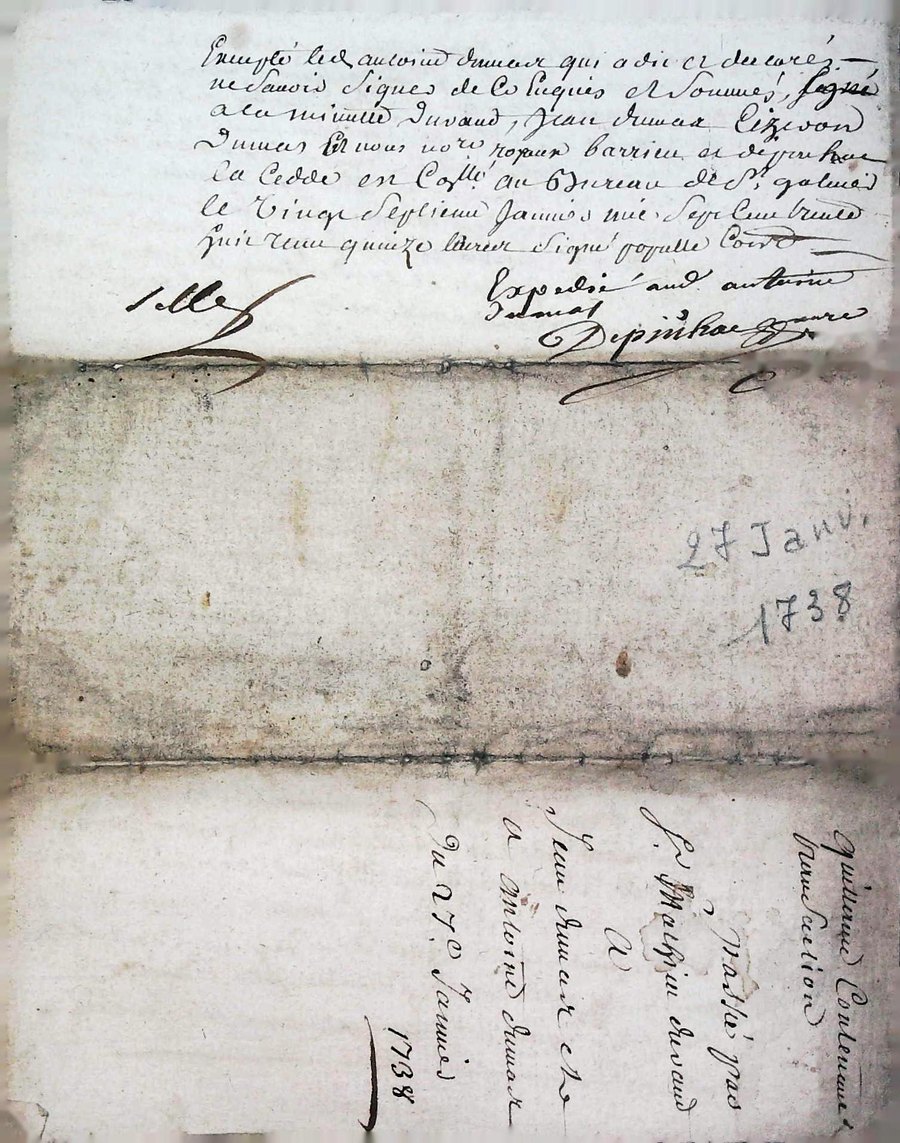 Excepté led antoine dumas qui a dit et declaré
ne Savoir Signer de Ce Enquis et Sommé, signé
a la minutte Durand, Jean dumas
Dumas Et nous no.re royaux barrieu et depinhac
la Cedde en Co.lle au Bureau de St galmier
le Vingt Septieme Janvier mil Sept Cent trente
huit receu quinze livres Signé populle Comis
Expedié aud. antoine
dumas
Depinhac no.re
27 Janv.
1738
Quittance Contenant
transaction
passée par
Sr. Mathieu durand
A
Jean dumas et
a Antoine dumas
Du 27e Janvier
1738